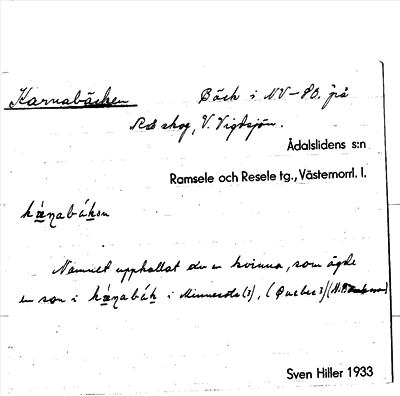 Karnabäcken Bäck i NV-SO. på
skog, V. Vigdsjön.
Ådalslidens s:n
Ramsele och Resele tg., Västernorrl. l.
Namnet upphallat av en kvinna, som ägde
en son i i Minnesota (?), (Quebec ?)
Sven Hiller 1933